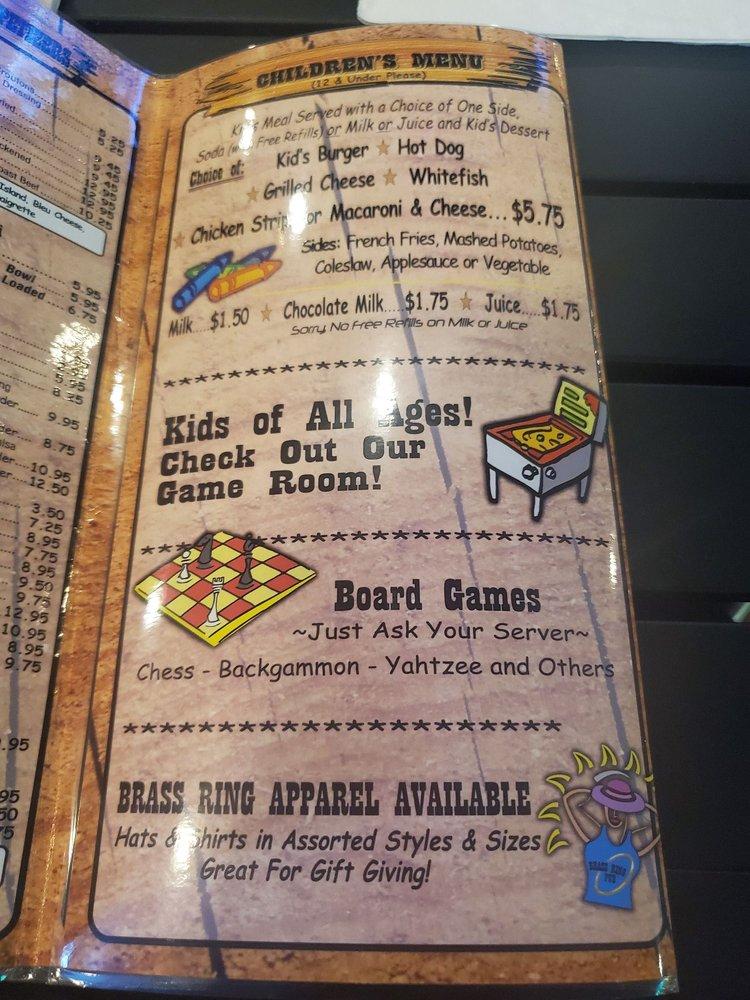 CHILDREN'S MENU
(12 & Under Please)
Meal Served with a Choice of One Side,
Soda Free Refills) or Milk or Juice and Kid's Dessert
Choice of: Kid's Burger ★ Hot Dog
★ Grilled Cheese ★ Whitefish
★ Chicken or Macaroni & Cheese... $5.75
Sides: French Fries, Mashed Potatoes,
Coleslaw, Applesauce or Vegetable
Milk....$1.50 ★ Chocolate Milk.....$1.75 ★ Juice.....$1.75
Sorry, No Free Refills on Milk or Juice
Kids of All Ages!
Check Out Our
Game Room!
Board Games
~Just Ask Your Server~
Chess - Backgammon - Yahtzee and Others
BRASS RING APPAREL AVAILABLE
Hats & Shirts in Assorted Styles & Sizes
Great For Gift Giving!
BRASS RING
PUB
Dressing
5.25
5.25
9.45
10.25
Island, Bleu Cheese,
Bowl 5.95
Loaded 5.95
6.75
5.95
8.25
9.95
8.75
10.95
12.50
3.50
7.25
8.95
7.75
8.95
9.50
9.75
12.95
10.95
8.95
9.75
.95
95
50
75